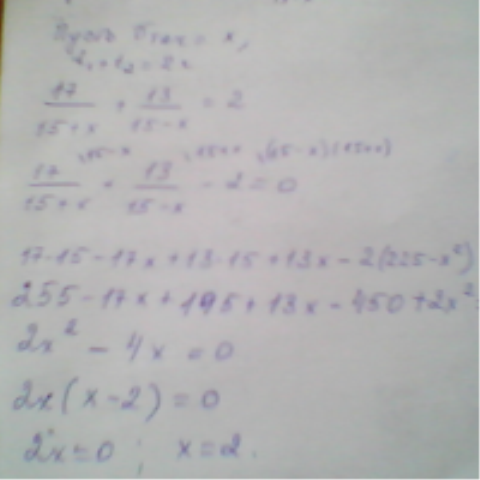 Пусть Vтеч = x,
t₁ + t₂ = 2ч
17/(15+x) + 13/(15-x) = 2
17/(15+x) + 13/(15-x) - 2 = 0
17·15 - 17x + 13·15 + 13x - 2(225-x²)
255 - 17x + 195 + 13x - 450 + 2x²
2x² - 4x = 0
2x(x-2) = 0
2x = 0 ; x = 2.